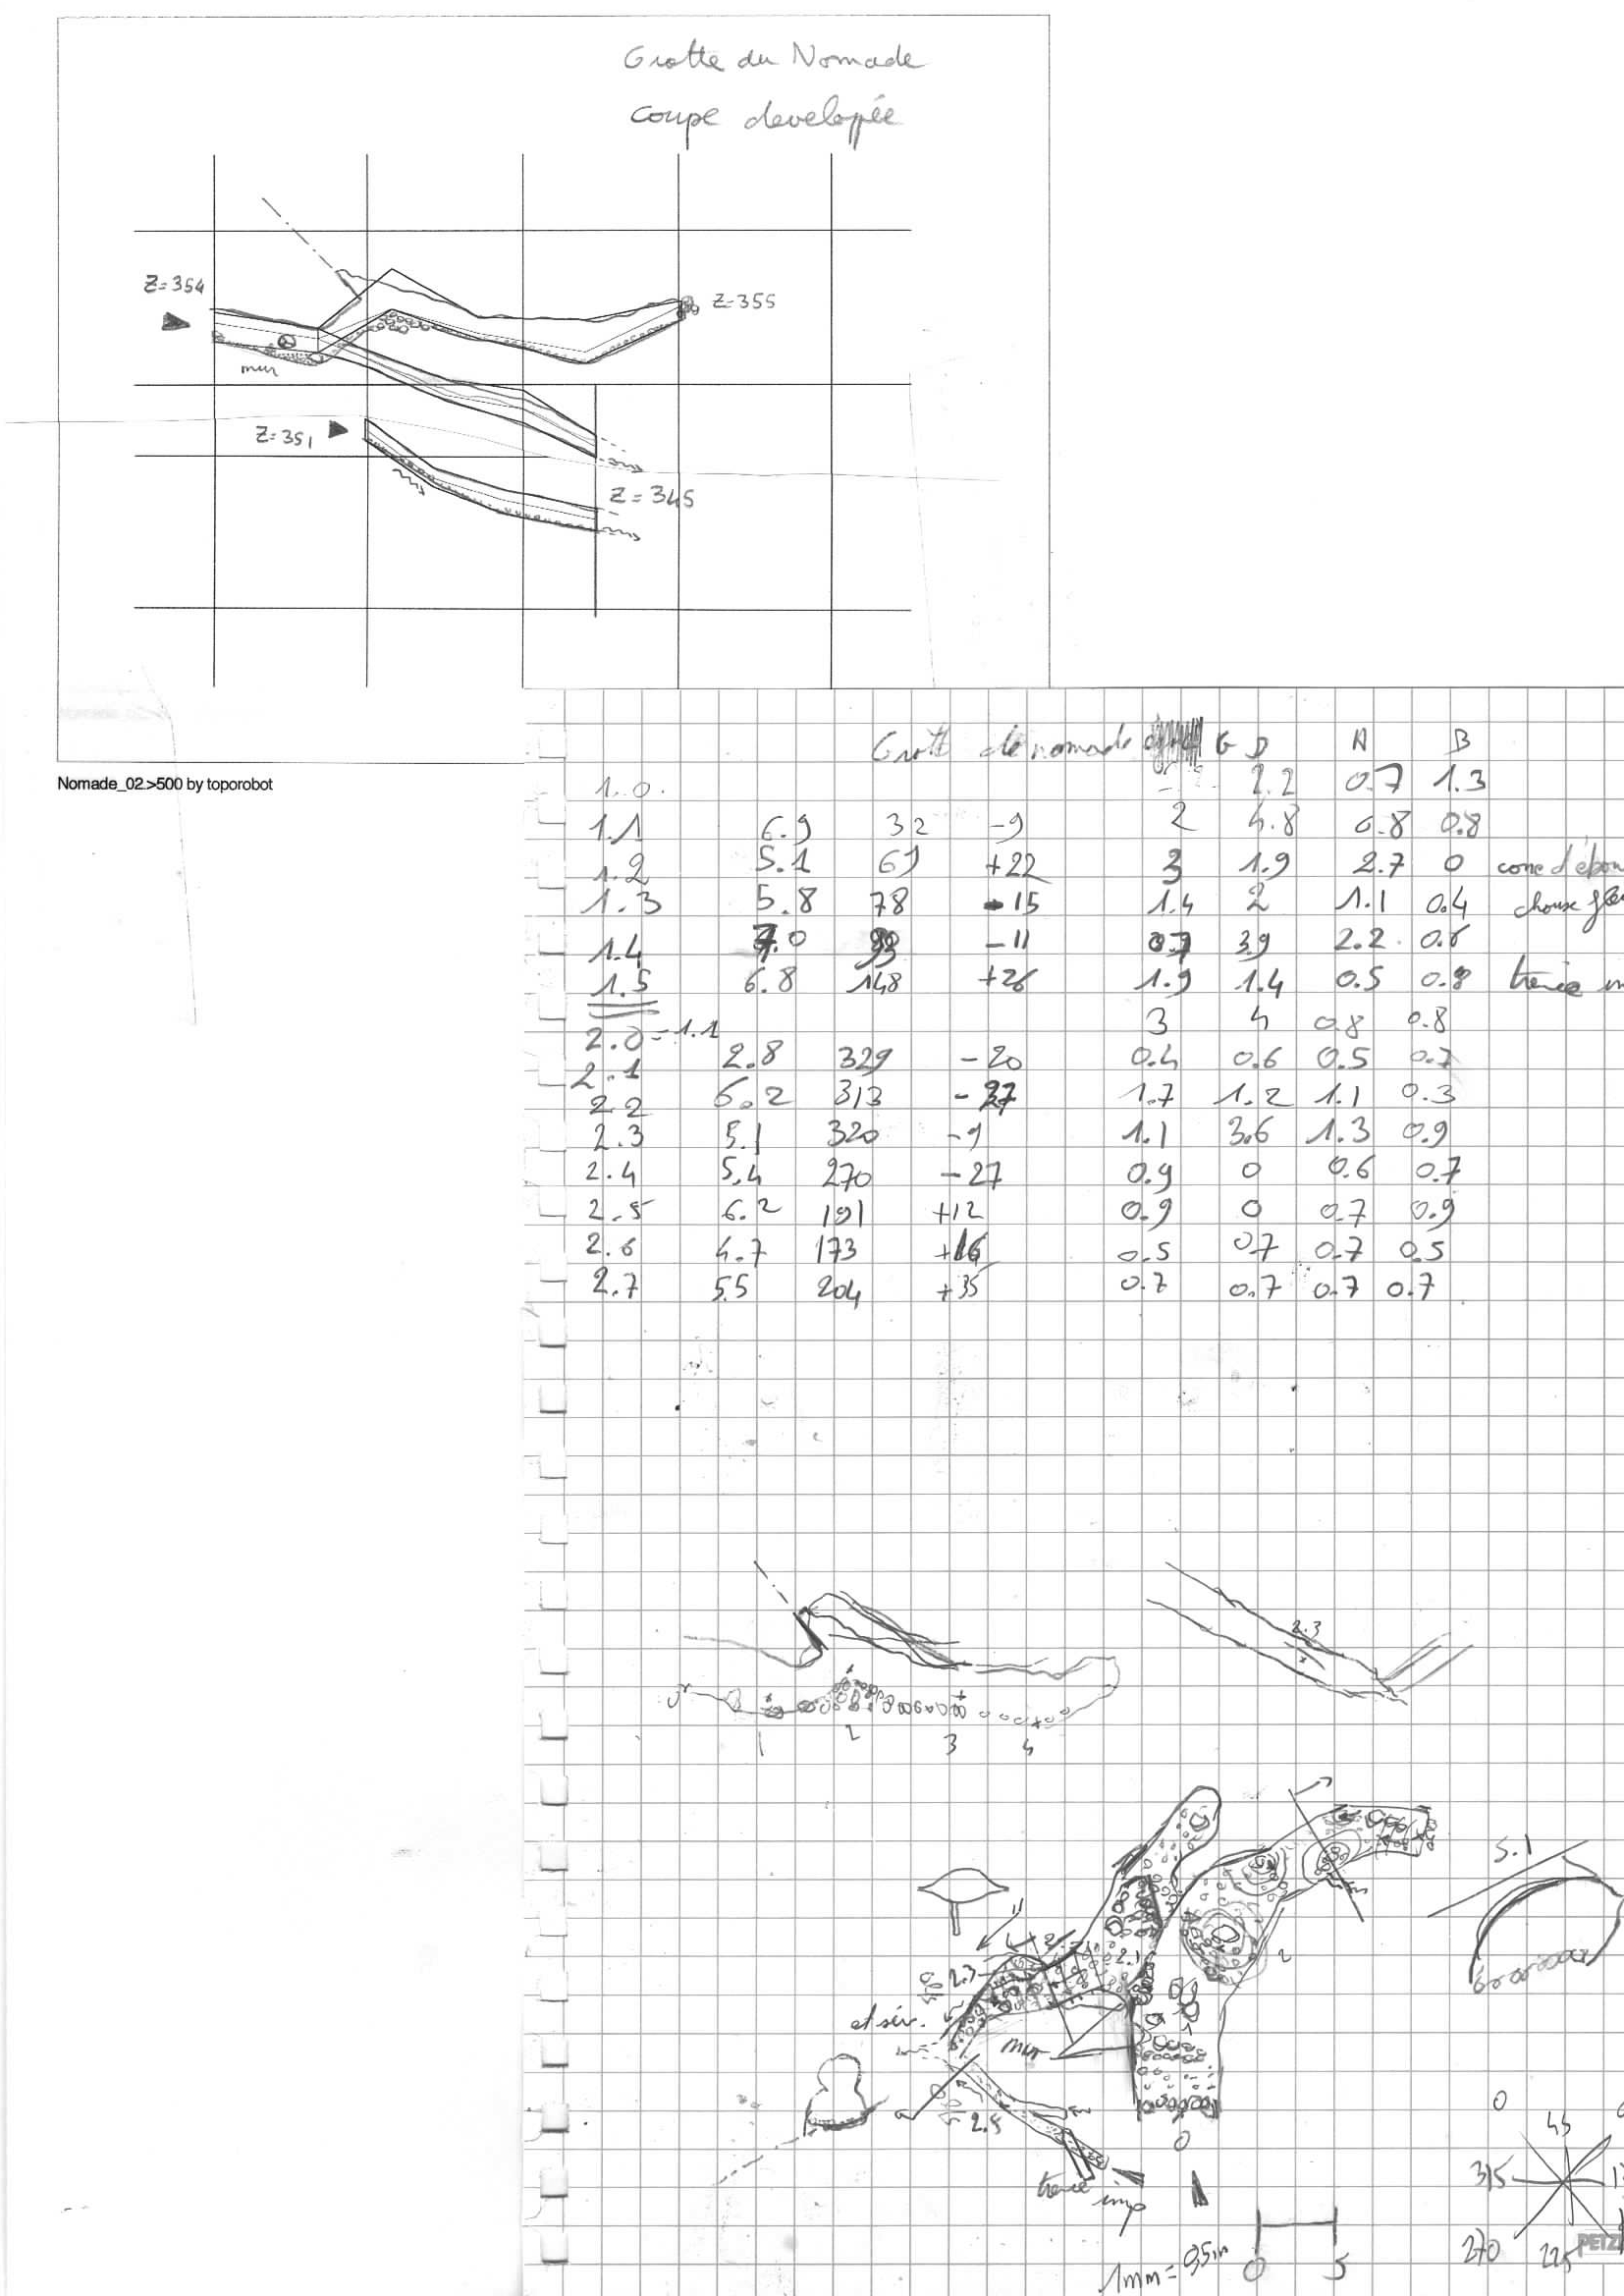 Grotte du Nomade
coupe developée
Z=354
Z=355
mur
Z=351
Z=345
Nomade_02.>500 by toporobot
Grott de nomade G D A B
1.0. 2.2 0.7 1.3
1.1 6.9 32 -9 2 4.8 0.8 0.8
1.2 5.1 69 +22 3 1.9 2.7 0 cone d'ébou
1.3 5.8 78 -15 1.4 2 1.1 0.4
1.4 7.0 -11 0.7 3.9 2.2 0.6
1.5 6.8 148 +26 1.9 1.4 0.5 0.8
2.0=1.1 3 4 0.8 0.8
2.1 2.8 329 -20 0.4 0.6 0.5 0.7
2.2 6.2 313 -27 1.7 1.2 1.1 0.3
2.3 5.1 320 -9 1.1 3.6 1.3 0.9
2.4 5.4 270 -27 0.9 0 0.6 0.7
2.5 6.2 191 +12 0.9 0 0.7 0.9
2.6 4.7 173 +16 0.5 0.7 0.7 0.5
2.7 5.5 204 +35 0.7 0.7 0.7 0.7
2.3
1 2 3 4
5.1
11
2
2.3
2.1
2
et sév.
mur
2.5
0
imp
0
45
315
270
225
PETZ
1mm = 0,5m
0 5